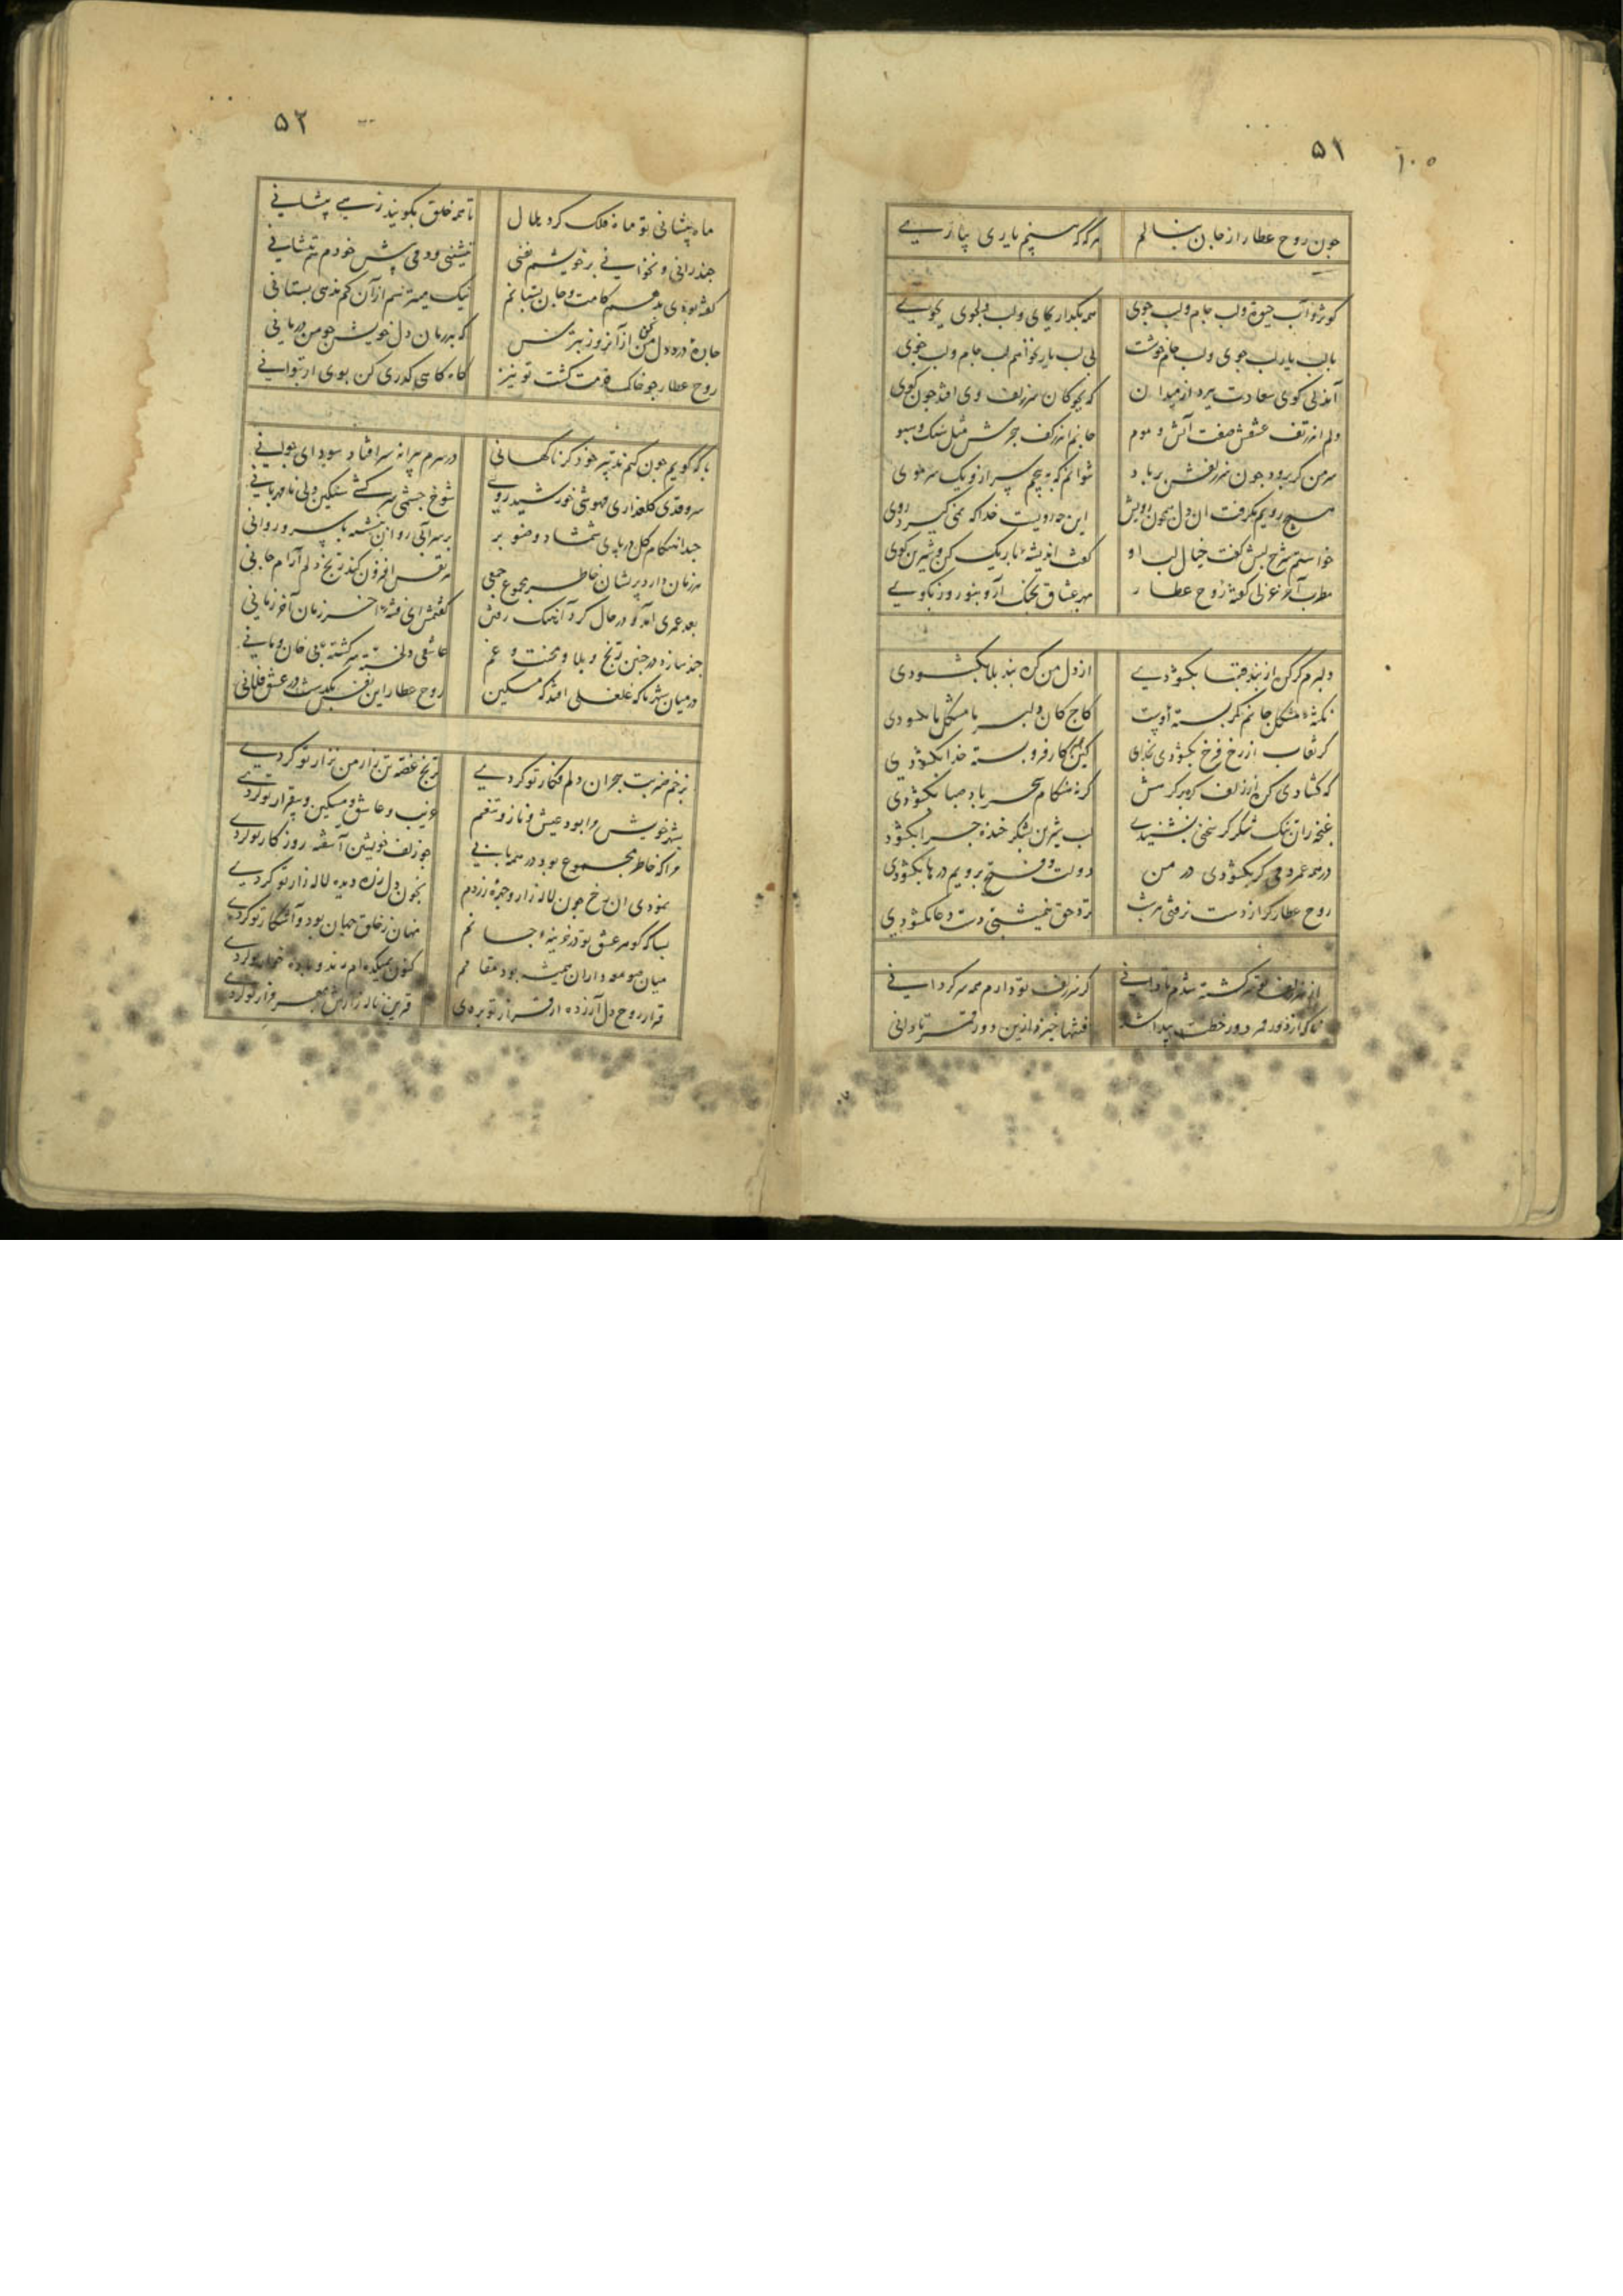 ۵۱
۱۰۵
چون روح عطار از جان بنالم هرگه که بینم یاری بیازیے
کوثر و آب حیوة و لب جام و لب جوی همه بگذار بجای و لب دلجوی بجویے
با لب یار لب جوی و لب جانم خوشست بی لب یار نخواهم لب جام و لب جوی
آنذلی کوی سعادت ببرد از میدان که بچوکان سر زلف وی افتد چون کوی
دلم از تف عشقش صفت آتش و موم جانم از کف هجرش مثل سنک و سبو
سر من کر برود چون سر زلفش بر باد نتوانم که بپیچم سر ازو یک سر موی
هیچ رویم نکرفت ان دل چون رویش این چه رویست خدا که نمی کیرد روی
خواستم شرح لبش کفت خیال لب او کفت اندیشه باریک کن و شیرین کوی
مطرب آخر غزلی کفتهٔ روح عطار بهر عشاق بچنک آر و بنوروز بکویے
دلبرم کر کره از بند قبا بکشودیے از دل من کره بند بلا بکشودی
نکتهٔ مشکل جانم کمر بستهٔ اوست کاج کان دلبر ما مشکل ما بکشودی
کر نقاب از رخ فرخ بکشودی بخدای کین کار فرو بسته خدا بکشودی
که کشادی کره از زلف کره بر کرهش کر هنکام سحر باد صبا بکشودی
غنچه زان تنک شکر کر سخنی بشنیدے لب شیرین بشکر خنده چرا بکشود
در همه عمر دمی کر بکشودی در من دولت و فتح برویم درها بکشودی
روح عطار کر از دست نرفتی هر شب تردحق خیشتی دست دعا بکشودی
از سر زلف تو سرکشته شدم تا دانے کز سر زلف تو دارم همه سرکردانے
تا که از دور قمر دور خطت پیدا شد فتنها خیزد ازین دور قمر تا دانی
۵۲
ماه پیشانی تو ماه فلک کرد هلال تا همه خلق بکویند زهے پیشانے
چند رانی و نخوانے بر خویشم نفسی ننشینی و دمی پیش خودم ننشانے
کفته بودی بدهم کامت و جان بستانم نیک میترسم از آن کم ندهی بستانی
جانم درد دل من از آن روز بترس که بدرمان دل خویش چو من درمانی
روح عطار چو خاک قدمت کشت تو نیز کاه کاهی کذری کن بوی ار توانے
با که کویم چون کنم تدبیر خود کز ناکهانی در سرم پیرانه سر افتاد سودای جوانے
سرو قدی کلعذاری مهوشی خورشید رویے شوخ چشمی سرکشے سنکین دلی نامهربانے
حبدا هنکام کل در پای شمشاد و صنوبر بر سر آبی روان بنشسته با سرو روانی
هر زمان دارد پریشان خاطر مجموع جمعی هر نفس افزون کند رنج دلم آرام جانی
بعد عمری آمد کو در حال کرد آهنک رفتن کفتمش ای فتنهٔ آخر زمان آخر زمانی
چند سازد در چنین رنج و بلا و محنت و غم عاشقی دلخسته سرکشته بی خان و مانے
در میان شهر ما که غلغلی افتد که مسکین روح عطار این نفس بکذشت در عشق فلانی
بزخم ضربت هجران دلم فکار تو کردیے برنج غصه تن زار من نزار تو کردیے
بشهر خویش مرا بود عیش و ناز و تنعم غریب و عاشق و مسکین و بیقرار تو کردے
مرا که خاطر مجموع بود در همه بابے چو زلف خویشتن آشفته روزکار تو کردے
نمودی ان رخ چون لاله زار و چهرهٔ زردم بخون دل زره دیده لاله زار تو کردیے
بسا که کوهر عشق تو در خزینهٔ جانم نهان ز خلق جهان بود و آشکار تو کردے
میان صومعه داران همیشه بود مقامم کنون بمیکده ام رند و باده خوار تو کردے
قرار روح دل آزرده از قرار تو بردی قرین ناله زارش